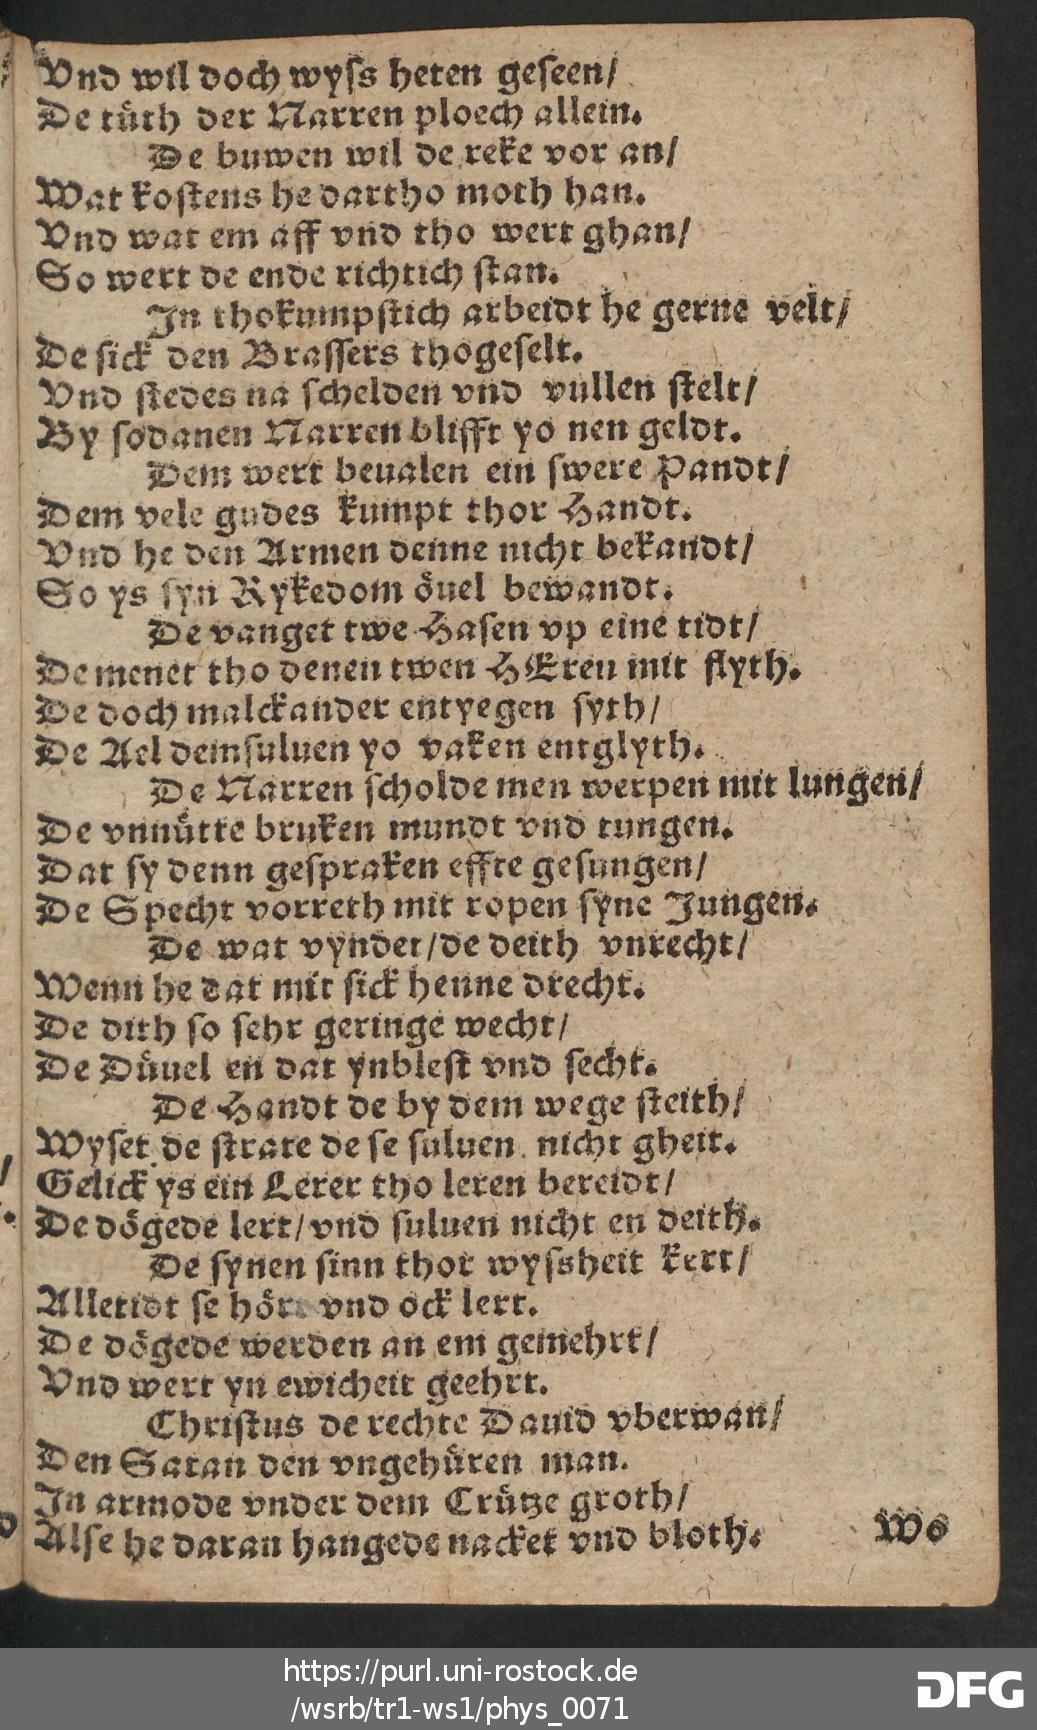 Vnd wil doch wyſs heten geseen/
De tüth der Narren ploech allein.
De buwen wil de reke vor an/
Wat koſtens he dartho moth han.
Vnd wat em aff vnd tho wert ghan/
So wert de ende richtich ſtan.
In thokumpſtich arbeidt he gerne velt/
De ſick den Braſſers thogeſelt.
Vnd ſtedes na ſchelden vnd vullen ſtelt/
By ſodanen Narren blifft yo nen geldt.
Dem wert beualen ein ſwere Pandt/
Dem vele gudes kumpt thor Handt.
Vnd he den Armen denne nicht bekandt/
So ys ſyn Rykedom öuel bewandt.
De vanget twe Haſen vp eine tidt/
De menet tho denen twen HEren mit flyth.
De doch malckander entyegen ſyth/
De Ael demſuluen yo vaken entglyth.
De Narren ſcholde men werpen mit lungen/
De vnnütte bruken mundt vnd tungen.
Dat ſy denn geſpraken effte geſungen/
De Specht vorreth mit ropen ſyne Jungen.
De wat vyndet/de deith vnrecht/
Wenn he dat mit ſick henne drecht.
De dith ſo ſehr geringe wecht/
De Düuel en dat ynbleſt vnd ſecht.
De Handt de by dem wege ſteith/
Wyſet de ſtrate de ſe ſuluen nicht gheit.
Gelick ys ein Lerer tho leren bereidt/
De dögede lert/vnd ſuluen nicht en deith.
De ſynen ſinn thor wyſsheit kert/
Alletidt ſe hört vnd ock lert.
De dögede werden an em gemehrt/
Vnd wert yn ewicheit geehrt.
Chriſtus de rechte Dauid vberwan/
Den Satan den vngehüren man.
In armode vnder dem Crütze groth/
Alſe he daran hangede nacket vnd bloth.
Wo
https://purl.uni-rostock.de
/wsrb/tr1-ws1/phys_0071
DFG